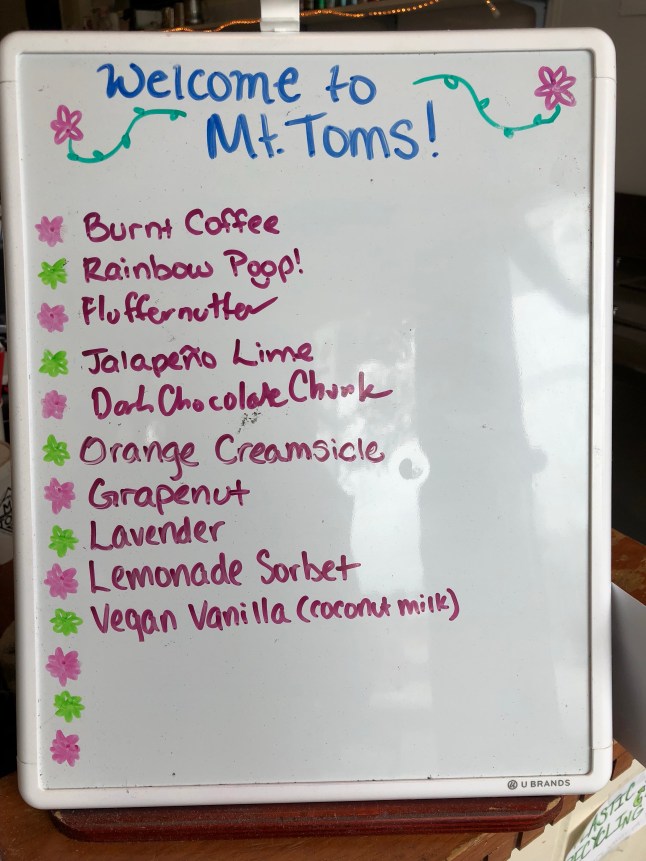 Welcome to
Mt. Toms!
Burnt Coffee
Rainbow Poop!
Fluffernutter
Jalapeño Lime
Dark Chocolate Chunk
Orange Creamsicle
Grapenut
Lavender
Lemonade Sorbet
Vegan Vanilla (coconut milk)
U BRANDS